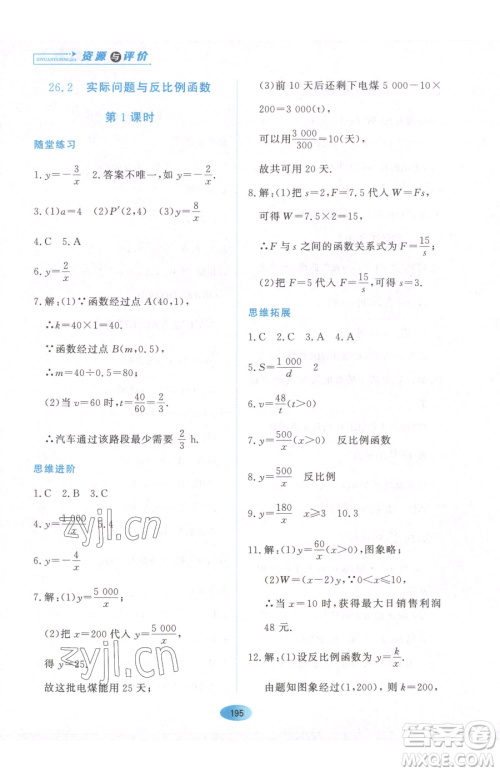 资源与评价
26.2 实际问题与反比例函数
第1课时
随堂练习
1.y=-3/x 2.答案不唯一,如y=-2/x
3.(1)a=4 (2)P′(2,4) (3)y=8/x
4.C 5.A
6.y=2/x
7.解:(1)∵函数经过点A(40,1),
∴k=40×1=40.
∵函数经过点B(m,0.5),
∴m=40÷0.5=80.
(2)当v=60时,t=40/60=2/3,
∴汽车通过该路段最少需要2/3 h.
思维进阶
1.C 2.B 3.C
4.y=1 000/x 5.4
6.y=-4/x
7.解:(1)y=5 000/x
(2)把x=200代入y=5 000/x,
得y=25.
故这批电煤能用25天;
(3)前10天后还剩下电煤5 000-10×
200=3 000(t),
可以用3 000/300=10(天),
故共可用20天.
8.解:(1)把s=2,F=7.5代入W=Fs
可得W=7.5×2=15,
∴F与s之间的函数关系式为F=15/s;
(2)把F=5代入F=15/s,可得s=3.
思维拓展
1.C 2.C 3.A 4.A
5.S=1 000/d 2
6.v=48/t(t>0)
7.y=500/x(x>0) 反比例函数
8.y=500/x 反比例
9.y=180/x x≥3 10.3
11.解:(1)y=60/x(x>0),图象略;
(2)W=(x-2)y,
∴当x=10时,获得最大日销售利润
48元.
12.解:(1)设反比例函数为y=k/x.
由题知图象经过点(0.4,1),
195
zyjl.cn
zyjl.cn
答案圈
MXQE.COM